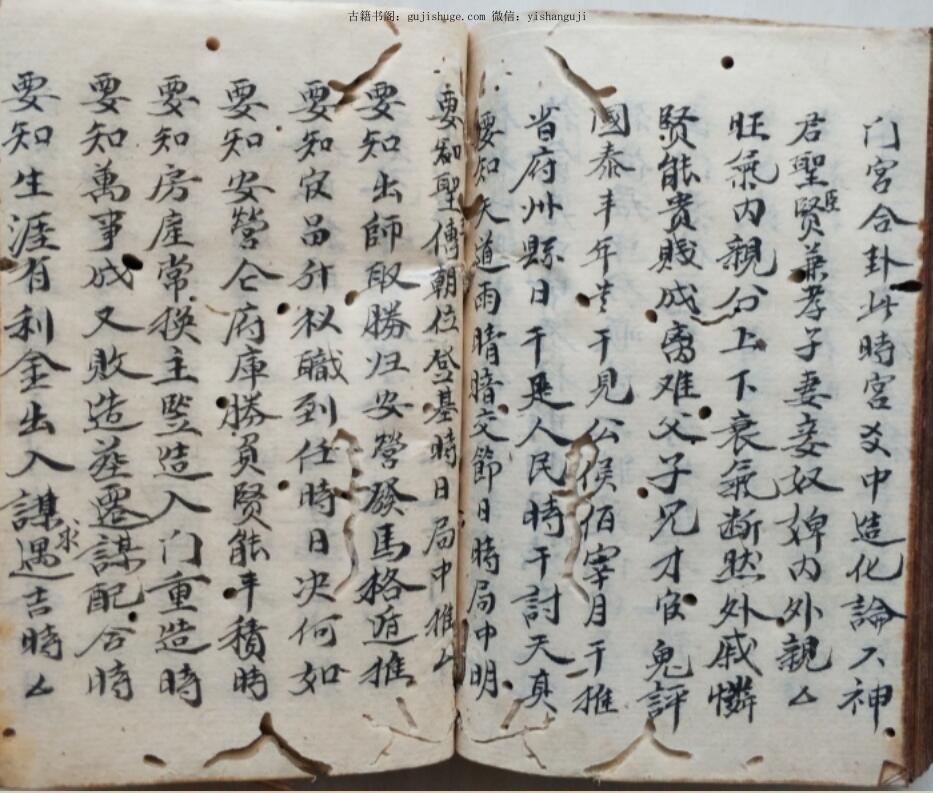 古籍书阁：gujishuge.com 微信：yishanguji
门宮合卦此時宮爻中造化論六神
君聖臣賢兼孝子妻妾奴婢内外親△
旺氣内親公上下衰氣断然外戚憐
賢能貴賤成离难父子兄才官鬼評
國泰丰年岁干見公侯佰宰月干推
省府州縣日干是人民時干討天真
要知天道雨晴暗交節日時局中明
要知聖傳朝位登基時日局中推△
要知出師取勝归安營發馬格追推
要知官品升拟職到任時日决何如
要知安營仝府庫勝負賢能丰積時
要知房産常换主竪造入门重造時
要知萬事成又敗造塟遷謀配合時
要知生涯有利金出入謀求遇吉時△